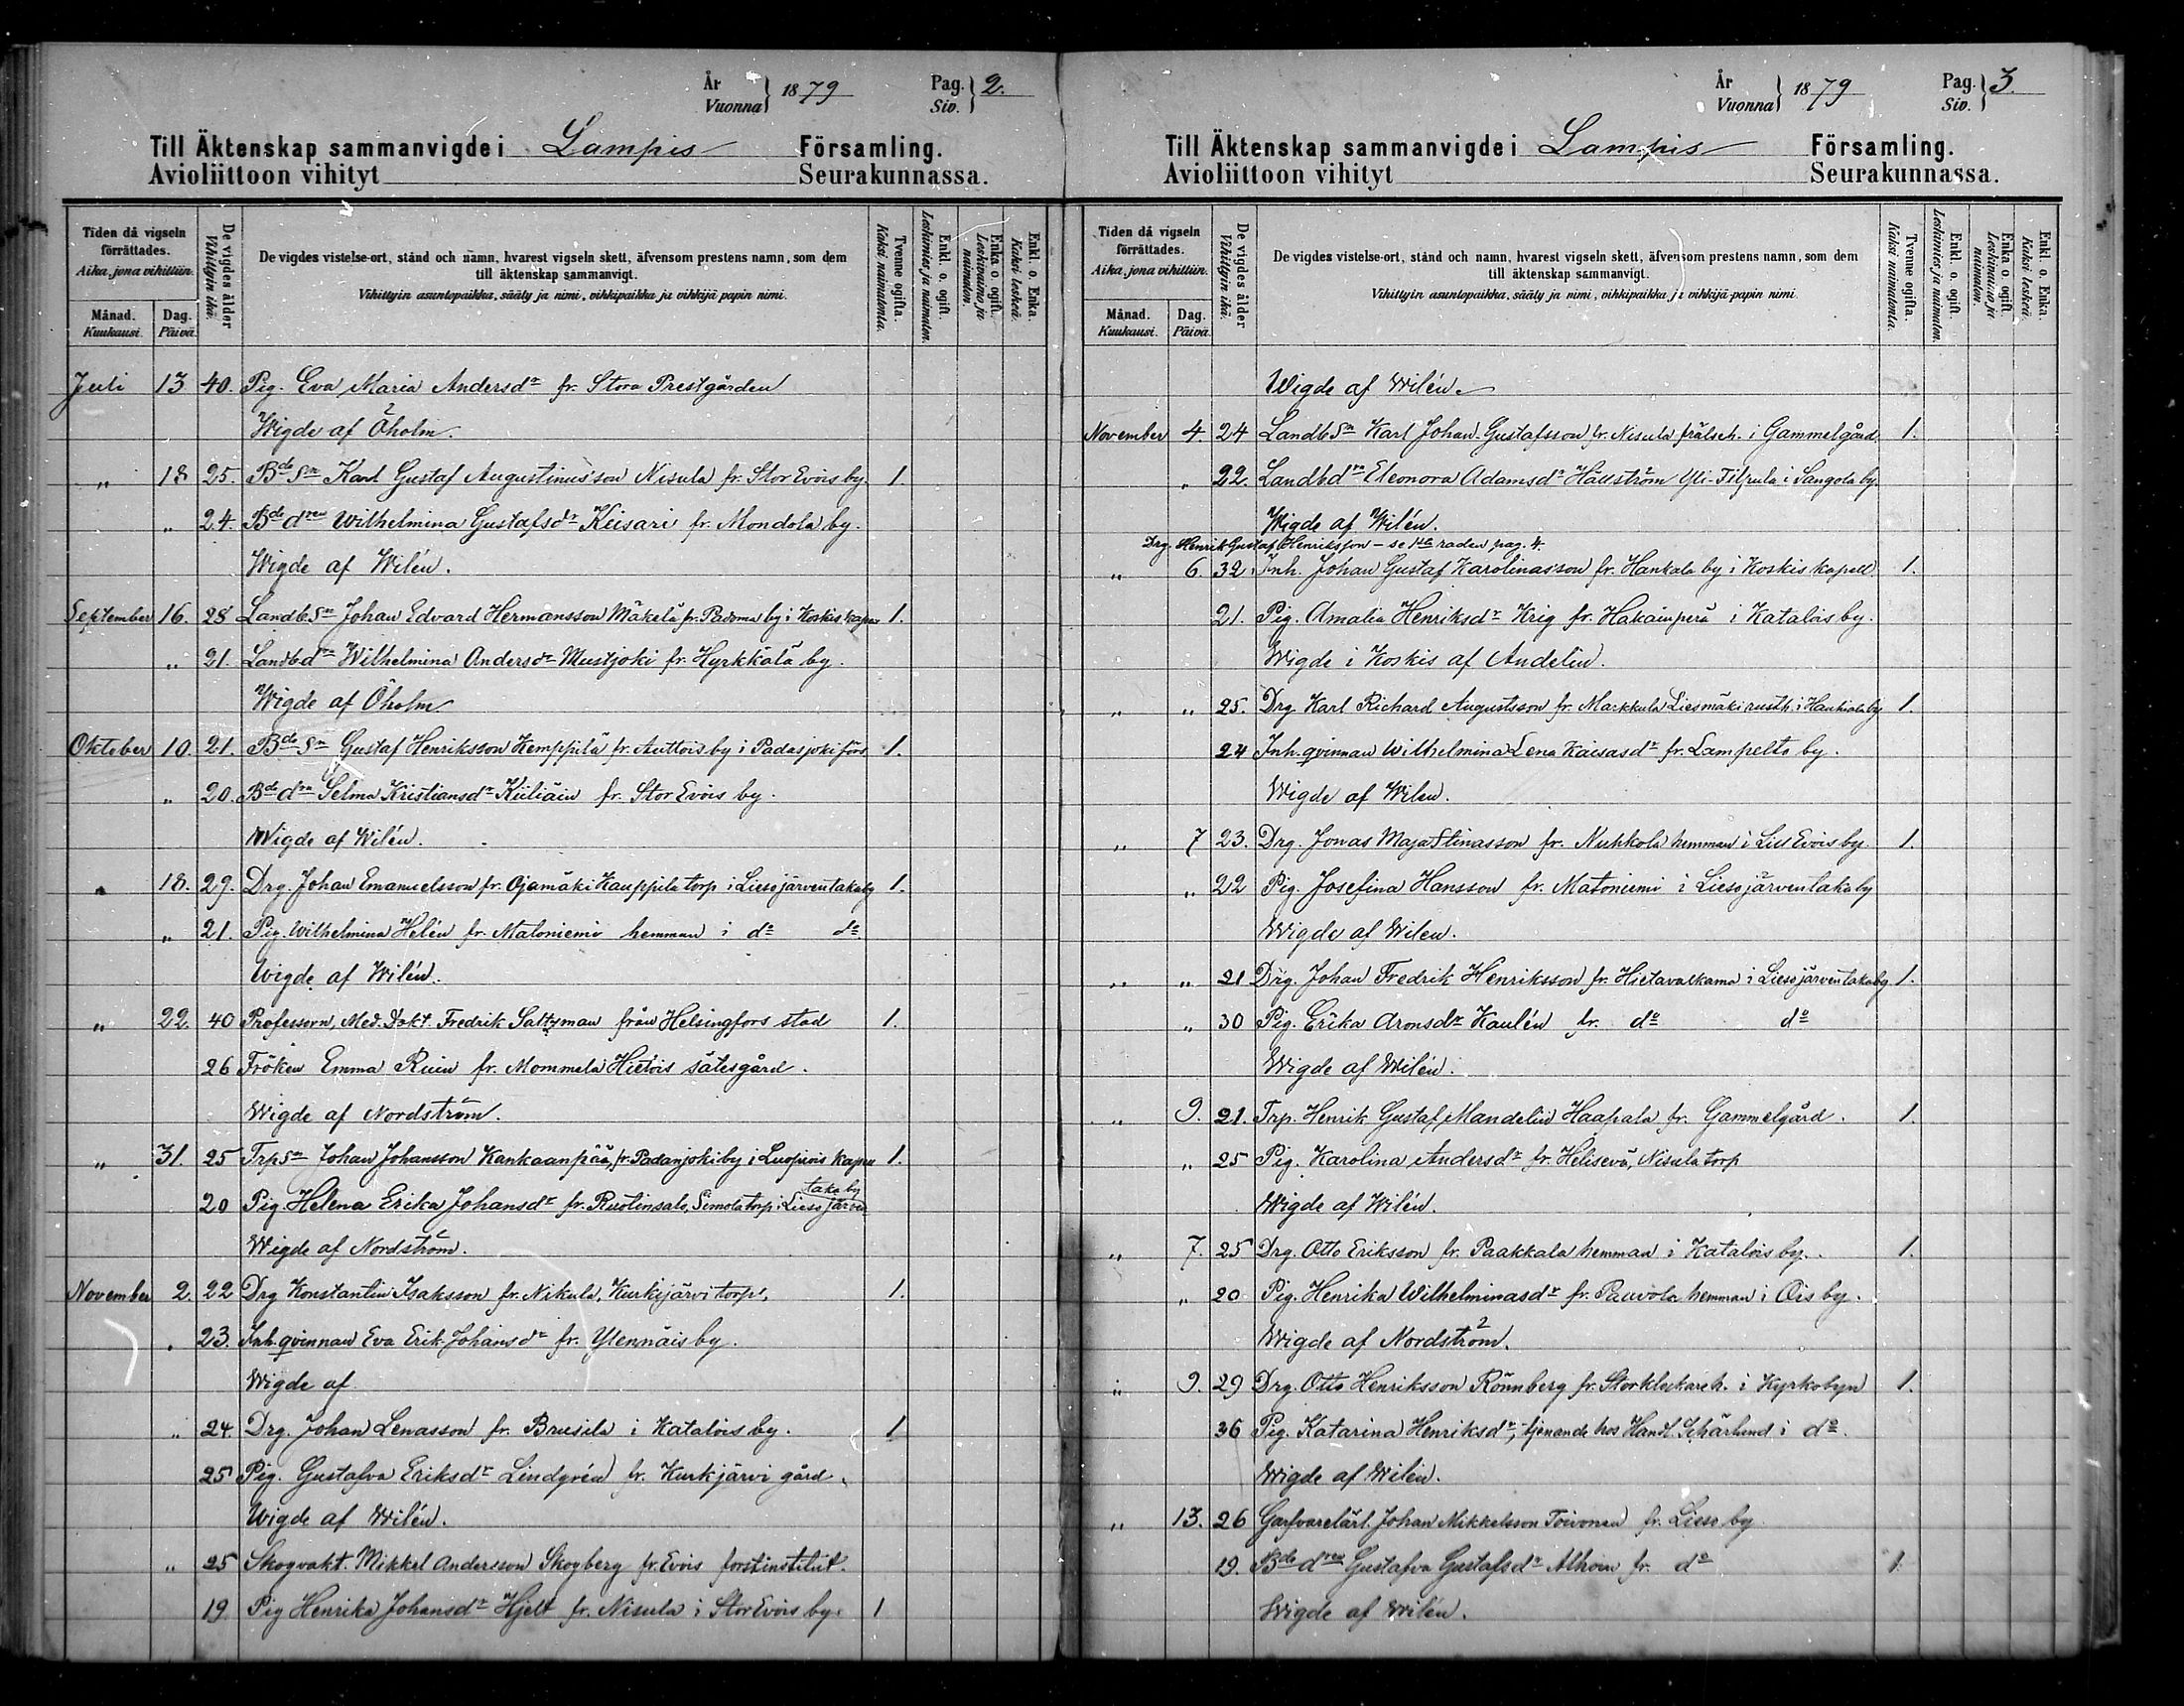 År
Vuonna } 1879
Pag.
Siv. } 2.
Till Äktenskap sammanvigde i Lampis Församling.
Avioliittoon vihityt Seurakunnassa.
Tiden då vigseln förrättades.
Aika, jona vihittiin.
Månad.
Kuukausi.
Dag.
Päivä.
De vigdes ålder
Vihittyin ikä.
De vigdes vistelse-ort, stånd och namn, hvarest vigseln skett, äfvensom prestens namn, som dem
till äktenskap sammanvigt.
Vihittyin asuntopaikka, sääty ja nimi, vihkipaikka ja vihkijä papin nimi.
Tvenne ogifta.
Kaksi naimatonta.
Enkl. o. ogift.
Leskimies ja naimaton.
Enka o. ogift.
Leskivaimo ja naimaton.
Enkl. o. Enka.
Kaksi leskeä.
Juli 13 40. Pig. Eva Maria Andersdr fr. Stora Prestgården
Wigde af Öholm.
" 18 25. Bde Sn Karl Gustaf Augustinusson Nisula fr. Stor Evois by. 1.
" 24. Bde drn Wilhelmina Gustafsdr Keisari fr. Mondola by.
Wigde af Wilén.
September 16. 28 Landb. Sn Johan Edvard Hermansson Mäkelä fr. Padoma by i Koskis kapell 1.
" 21. Landb drn Wilhelmina Andersdr Mustjoki fr. Hyrkkälä by.
Wigde af Öholm
Oktober 10. 21. Bde Sn Gustaf Henriksson Kemppilä fr. Auttois by i Padasjoki förs 1.
" 20. Bde drn Selma Kristiansdr Kiiliäin fr. Stor Evois by.
Wigde af Wilén.
" 18. 29. Drg. Johan Emanuelsson fr. Ojamäki Kauppila torp i Liesojärventaka by 1.
" 21. Pig. Wilhelmina Helén fr. Matoniemi hemman i do do
Wigde af Wilén.
" 22. 40 Professorn, Med. Dokt. Fredrik Saltzman från Helsingfors stad 1.
26 Fröken Emma Ruin fr. Mommela Hietois sätesgård.
Wigde af Nordström.
" 31. 25 Trp Sn Johan Johansson Kankaanpää, fr. Padanjoki by i Luopiois kapell 1.
taka by
20 Pig. Helena Erika Johansdr fr. Ruolinsalo, Simola torp i Liesojärven
Wigde af Nordström.
November 2. 22 Drg Konstantin Isaksson fr. Nikula, Kurkijärvi torp, 1.
" 23. Inh. qvinnan Eva Erik-Johansdr fr. Ylennäis by.
Wigde af
" 24. Drg. Johan Lenasson fr. Brusila i Katalois by. 1
25 Pig. Gustafva Eriksdr Lindgrén fr. Kurkjärvi gård.
Wigde af Wilén.
" 25 Skogvakt. Mikkel Andersson Skogberg fr. Evois forstinstitut.
19 Pig Henrika Johansdr Hjelt fr. Nisula i Stor Evois by. 1
År
Vuonna } 1879
Pag.
Siv. } 3.
Till Äktenskap sammanvigde i Lampis Församling.
Avioliittoon vihityt Seurakunnassa.
Tiden då vigseln förrättades.
Aika, jona vihittiin.
Månad.
Kuukausi.
Dag.
Päivä.
De vigdes ålder
Vihittyin ikä.
De vigdes vistelse-ort, stånd och namn, hvarest vigseln skett, äfvensom prestens namn, som dem
till äktenskap sammanvigt.
Vihittyin asuntopaikka, sääty ja nimi, vihkipaikka ja vihkijä-papin nimi.
Tvenne ogifta.
Kaksi naimatonta.
Enkl. o. ogift.
Leskimies ja naimaton.
Enka o. ogift.
Leskivaimo ja naimaton.
Enkl. o. Enka.
Kaksi leskeä.
Wigde af Wilén.
November 4. 24 Landb Sn Karl Johan Gustafsson fr. Nisula frälseh. i Gammelgård 1.
" 22. Landbdrn Eleonora Adamsdr Hällström Yli-Tilpula i Sangola by
Wigde af Wilén.
Drg. Henrik Gustaf Henriksson – se 1sta raden pag. 4.
" 6. 32. Inh. Johan Gustaf Karolinasson fr. Hankala by i Koskis kapell 1.
21. Pig. Amalia Henriksdr Krig fr. Hakainperä i Katalois by.
Wigde i Koskis af Andelin.
" " 25. Drg Karl Richard Augustsson fr. Markkula Liesmäki rusth. i Hauhiala by 1.
24 Inh. qvinnan Wilhelmina Lena Kaisasdr fr. Lampelto by.
Wigde af Wilen.
" 7 23. Drg. Jonas Maja Stinasson fr. Nuhkola hemman i Lill Evois by 1.
" 22 Pig. Josefina Hansson fr. Matoniemi i Liesojärventaka by
Wigde af Wilen.
" " 21 Drg. Johan Fredrik Henriksson fr. Hietavalkama i Liesojärventaka by 1.
" 30 Pig. Erika Aronsdr Kaulén fr. do do
Wigde af Wilén.
" 9. 21. Trp. Henrik Gustaf Mandelin Haapala fr. Gammelgård. 1.
" 25 Pig. Karolina Andersdr fr. Helisevä, Nisula torp
Wigde af Wilén.
" 7. 25 Drg. Otto Eriksson fr. Paakkala hemman i Katalois by. 1.
" 20 Pig. Henrika Wilhelminasdr fr. Pauvola hemman i Ois by.
Wigde af Nordström.
" 9. 29 Drg. Otto Henriksson Rönnberg fr. Storklockareh. i Kyrkobyn 1.
36 Pig. Katarina Henriksdr, tjenande hos Handl. Schärlund i do.
Wigde af Wilén.
" 13. 26 Garfvarelärl. Johan Mikkelsson Toivonen fr. Lieso by
19. Bde drn Gustafva Gustafsdr Alhoin fr. do 1
Wigde af Wilén.